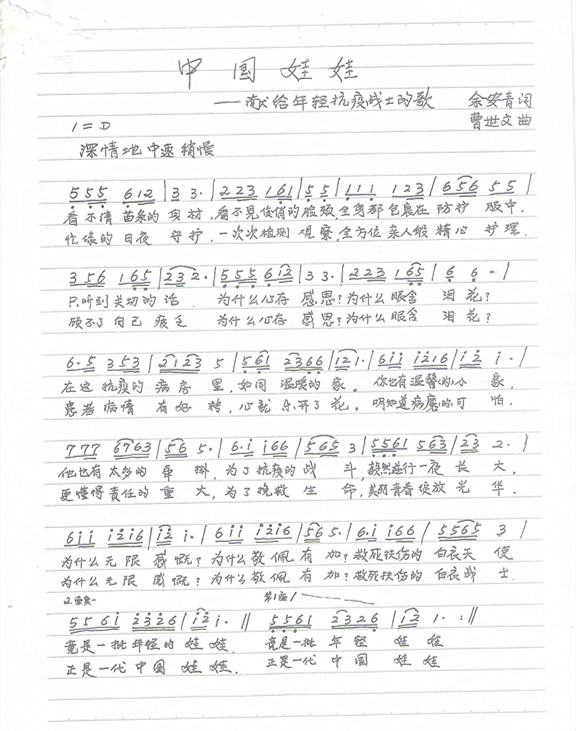 中国娃娃
——献给年轻抗疫战士的歌 余安青 词
1=D 曹世文 曲
深情地 中速 稍慢
555 612 | 3 3· | 223 161 | 55 | 111 123 | 656 55 |
看不清 苗条的 身材,看不见俊俏的脸颊 全身都包裹在 防护 服中,
忙碌的日夜 守护,一次次检测 观察,全方位亲人般 精心 护理,
356 165 | 232· | 5556 612 | 33· | 223 165 | 6 6 - |
只听到关切的话. 为什么心存 感恩?为什么眼含 泪花?
顾不了自己 疲乏 为什么心存 感恩?为什么眼含 泪花?
6·5 353 | 2123 5 | 561 2366 | 121· | 6ii i2i6 | i2 i· |
在这 抗疫的 病房 里,如同 温暖的 家。你也有温馨的小 家,
患者 病情 有好 转,心就 乐开了 花。明知道病魔的可 怕,
777 6763 | 56 5· | 6·i i66 | 565 3 | 5561 563 | 23 2· |
他也有 太多的 牵 挂,为了抗疫的 战 斗,毅然逆行一夜 长 大,
更懂得责任的 重 大,为了挽救 生 命,美丽青春绽放 光 华.
6ii i2i6 | i2 i· | 6ii i2i6 | 56 5· | 6·i i66 | 5565 3 |
为什么无限 感 慨?为什么敬佩 有 加?救死扶伤的 白衣天 使
为什么无限 感 慨?为什么敬佩 有 加?救死扶伤的 白衣战 士
556i 2326 | i2 i· :|| 5561 2326 | i2 1· :||
竟是一批年轻的 娃娃. 竟是一批 年 轻 娃娃
正是一代中国 娃娃. 正是一代 中 国 娃娃